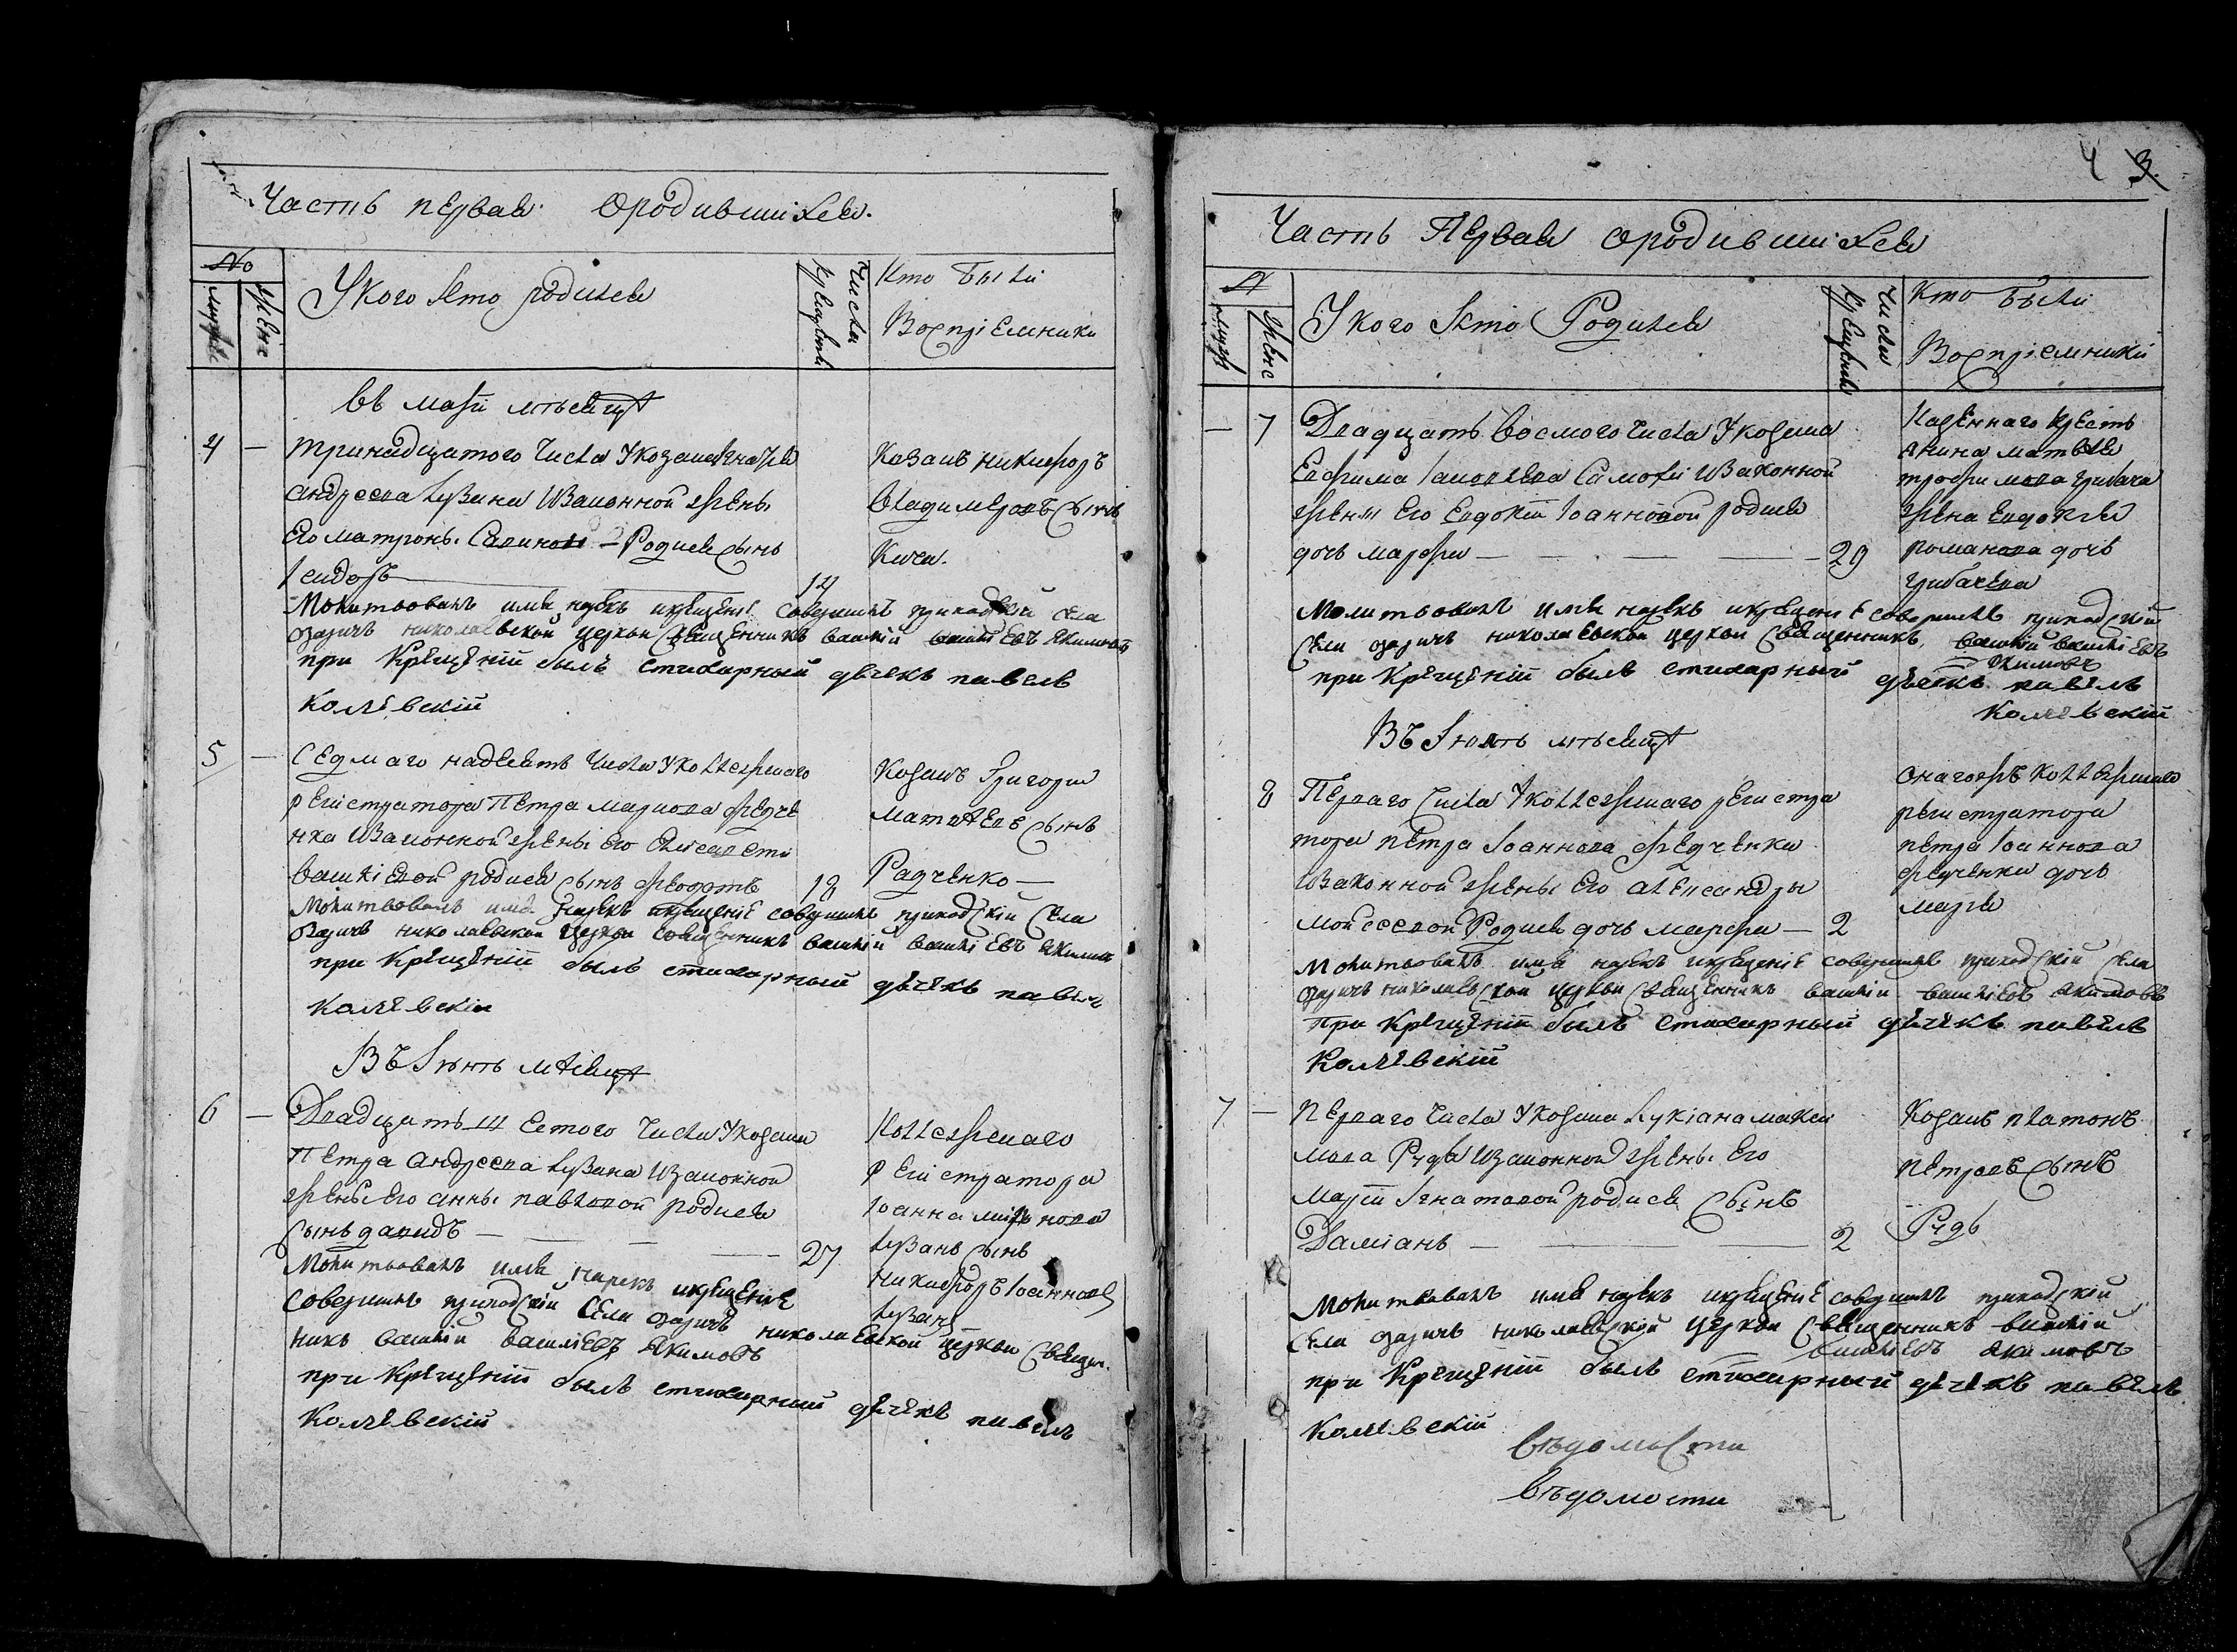 Часть первая ородившихся.
No
мужеска
женска
Укого кто родился
Числа крещенія
Кто были
Воспріемники
въ маіи мѣсяцѣ
4 — тринадцатого числа Укозака
андреева Лузана Изаконной жены
Его матроны Савиновой — Родился сынъ
Ісидоръ — 14
Козакъ никифоръ
владимеровъ сынъ
Кича.
Молитвовалъ имя нарекъ икрещеніе совершилъ приходскій села
озаричъ николаевской церкви священникъ василій василіевъ якимовъ
при Крещеніи былъ стихарный дьячекъ павелъ
5 — Седмаго надесять числа Уколлежскаго
регистратора Петра маркова федче
нка Изаконной жены его Елисавети
василіевой родился сынъ феодотъ 18
Козакъ Григорій
матвѣевъ сынъ
Радченко —
Молитвовалъ имя нарекъ икрещеніе совершилъ приходскій села
озаричъ николаевской церкви священникъ василій василіевъ якимовъ
при Крещеніи былъ стихарный дьячекъ павелъ
Въ Іюнѣ мѣсяцѣ
6 — Двадцать шестого числа Укозака
Петра андреева Лузана Изаконной
жены Его анны павловой родился
сынъ давидъ — 27
Коллежскаго
регистратора
Іоанна
Лузана сынъ
никифоръ Іоанновъ
Лузанъ
Молитвовалъ имя нарекъ икрещеніе
совершилъ приходскій села озаричъ николаевской церкви священ.
никъ василій василіевъ якимовъ
при Крещеніи былъ стихарный дьячекъ павелъ
4 3.
Часть Первая ородившихся
мужеска
женска
Укого кто Родился
Числа крещенія
Кто были
Воспріемники
— 7 Двадцать восмого числа Укозака
Евфима Іаковлева Изаконной
жены Его Евдокіи Іоанновой родися
дочь марфа — 29
Казеннаго кресть
янина матвѣя
трофимова грибача
жена Евдокія
романова дочь
грибачева
Молитвовалъ имя нарекъ икрещеніе совершилъ приходскій
села озаричъ николаевской церкви священникъ василій василіевъ
якимовъ
при Крещеніи былъ стихарный дьячекъ павелъ
Въ Іюлѣ мѣсяцѣ
8 Перваго числа Уколлежскаго регистра
тора петра Іоаннова федченка
Изаконной жены Его александры
мойсеевой Родися дочь марфа — 2
Онагожъ Коллежскаго
регистратора
петра Іоаннова
федченка дочь
марія
Молитвовалъ имя нарекъ икрещеніе совершилъ приходскій села
озаричъ николаевской церкви священникъ василій василіевъ якимовъ
При Крещеніи былъ стихарный дьячекъ павелъ
7 — Перваго числа Укозака Лукіана макси
мова Рудя Изаконной жены Его
маріи Игнатовой родися сынъ
Даміанъ — 2
Козакъ платонъ
петровъ сынъ
Рудь
Молитвовалъ имя нарекъ икрещеніе совершилъ приходскій
села озаричъ николаевской церкви священникъ василій
василіевъ якимовъ
при Крещеніи былъ стихарный дьячекъ павелъ
вѣдомости
вѣдомости